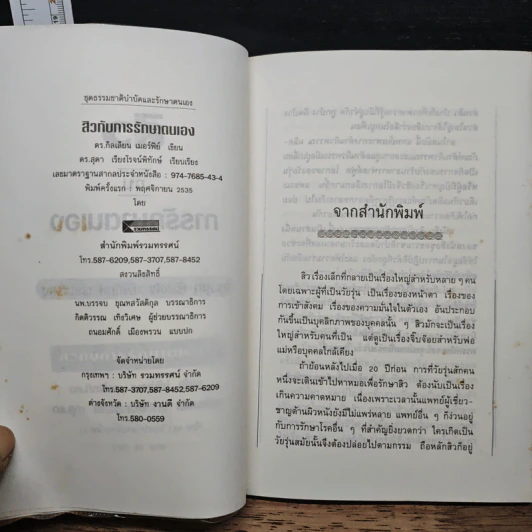 ชุดธรรมชาติบำบัดและรักษาตนเอง
สิวกับการรักษาตนเอง
ดร.กิลเลียน เมอร์ฟี่ย์ เขียน
ดร.สุดา เรืองโรจน์พิทักษ์ เรียบเรียง
เลขมาตราฐานสากลประจำหนังสือ : 974-7685-43-4
พิมพ์ครั้งแรก : พฤศจิกายน 2535
โดย
รวมทรรศน์
สำนักพิมพ์รวมทรรศน์
โทร.587-6209,587-3707,587-8452
สงวนลิขสิทธิ์
นพ.บรรจบ ชุณหสวัสดิกุล บรรณาธิการ
กิตติวรรณ เทียรวิเศษ ผู้ช่วยบรรณาธิการ
ถนอมศักดิ์ เมืองพรวน แบบปก
จัดจำหน่ายโดย
กรุงเทพฯ : บริษัท รวมทรรศน์ จำกัด
โทร.587-3707,587-8452,587-6209
ต่างจังหวัด : บริษัท งานดี จำกัด
โทร.580-0559
จากสำนักพิมพ์
สิว เรื่องเล็กที่กลายเป็นเรื่องใหญ่สำหรับหลาย ๆ คน
โดยเฉพาะผู้ที่เป็นวัยรุ่น เป็นเรื่องของหน้าตา เรื่องของ
การเข้าสังคม เรื่องของความมั่นใจในตัวเอง อันประกอบ
กันขึ้นเป็นบุคลิกภาพของบุคคลนั้น ๆ สิวมักจะเป็นเรื่อง
ใหญ่สำหรับคนที่เป็น แต่ดูเป็นเรื่องจิ๊บจ้อยสำหรับพ่อ
แม่หรือบุคคลใกล้เคียง
ถ้าย้อนหลังไปเมื่อ 20 ปีก่อน การที่วัยรุ่นสักคน
หนึ่งจะเดินเข้าไปหาหมอเพื่อรักษาสิว ต้องนับเป็นเรื่อง
เกินความคาดหมาย เนื่องเพราะเวลานั้นแพทย์ผู้เชี่ยว-
ชาญด้านผิวหนังยังมีไม่แพร่หลาย แพทย์อื่น ๆ ก็ง่วนอยู่
กับการรักษาโรคอื่น ๆ ที่สำคัญยิ่งยวดกว่า ใครเกิดเป็น
วัยรุ่นสมัยนั้นจึงต้องปล่อยไปตามกรรม ถือหลักสิวก็อยู่